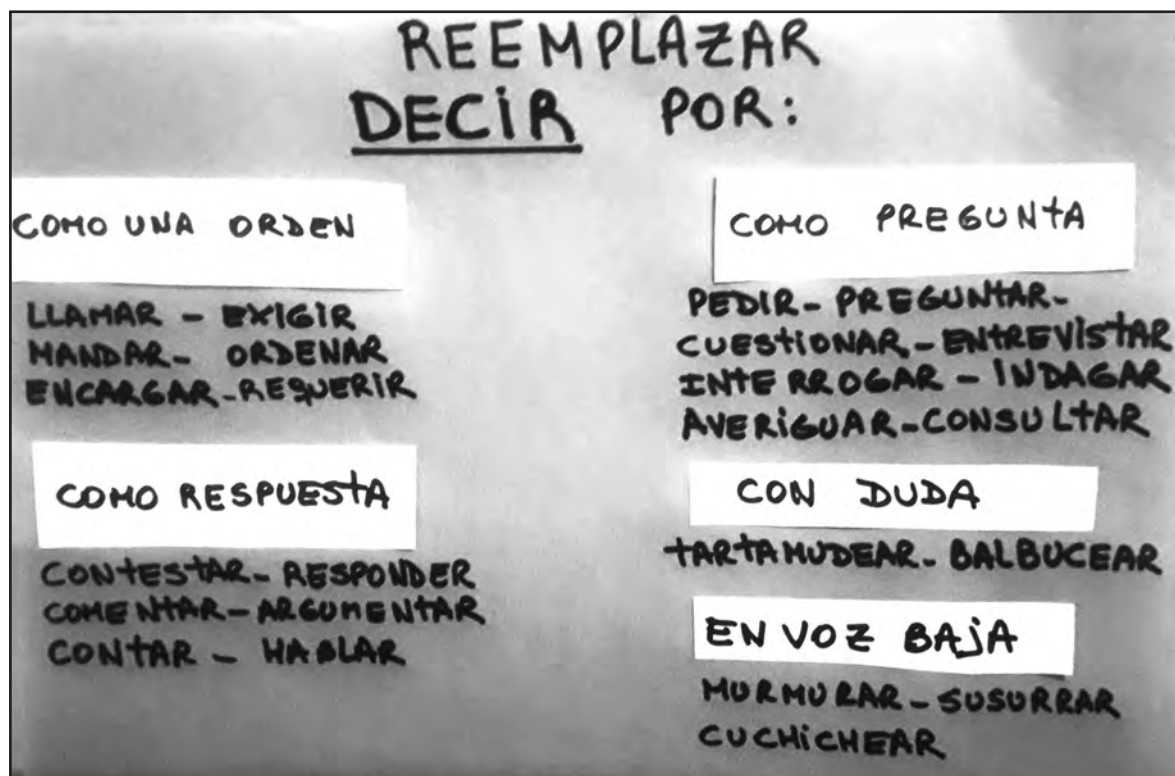 REEMPLAZAR
DECIR POR:
COMO UNA ORDEN
LLAMAR - EXIGIR
MANDAR - ORDENAR
ENCARGAR - REQUERIR
COMO RESPUESTA
CONTESTAR - RESPONDER
COMENTAR - ARGUMENTAR
CONTAR - HABLAR
COMO PREGUNTA
PEDIR - PREGUNTAR -
CUESTIONAR - ENTREVISTAR
INTERROGAR - INDAGAR
AVERIGUAR - CONSULTAR
CON DUDA
TARTAMUDEAR - BALBUCEAR
EN VOZ BAJA
MURMURAR - SUSURRAR
CUCHICHEAR